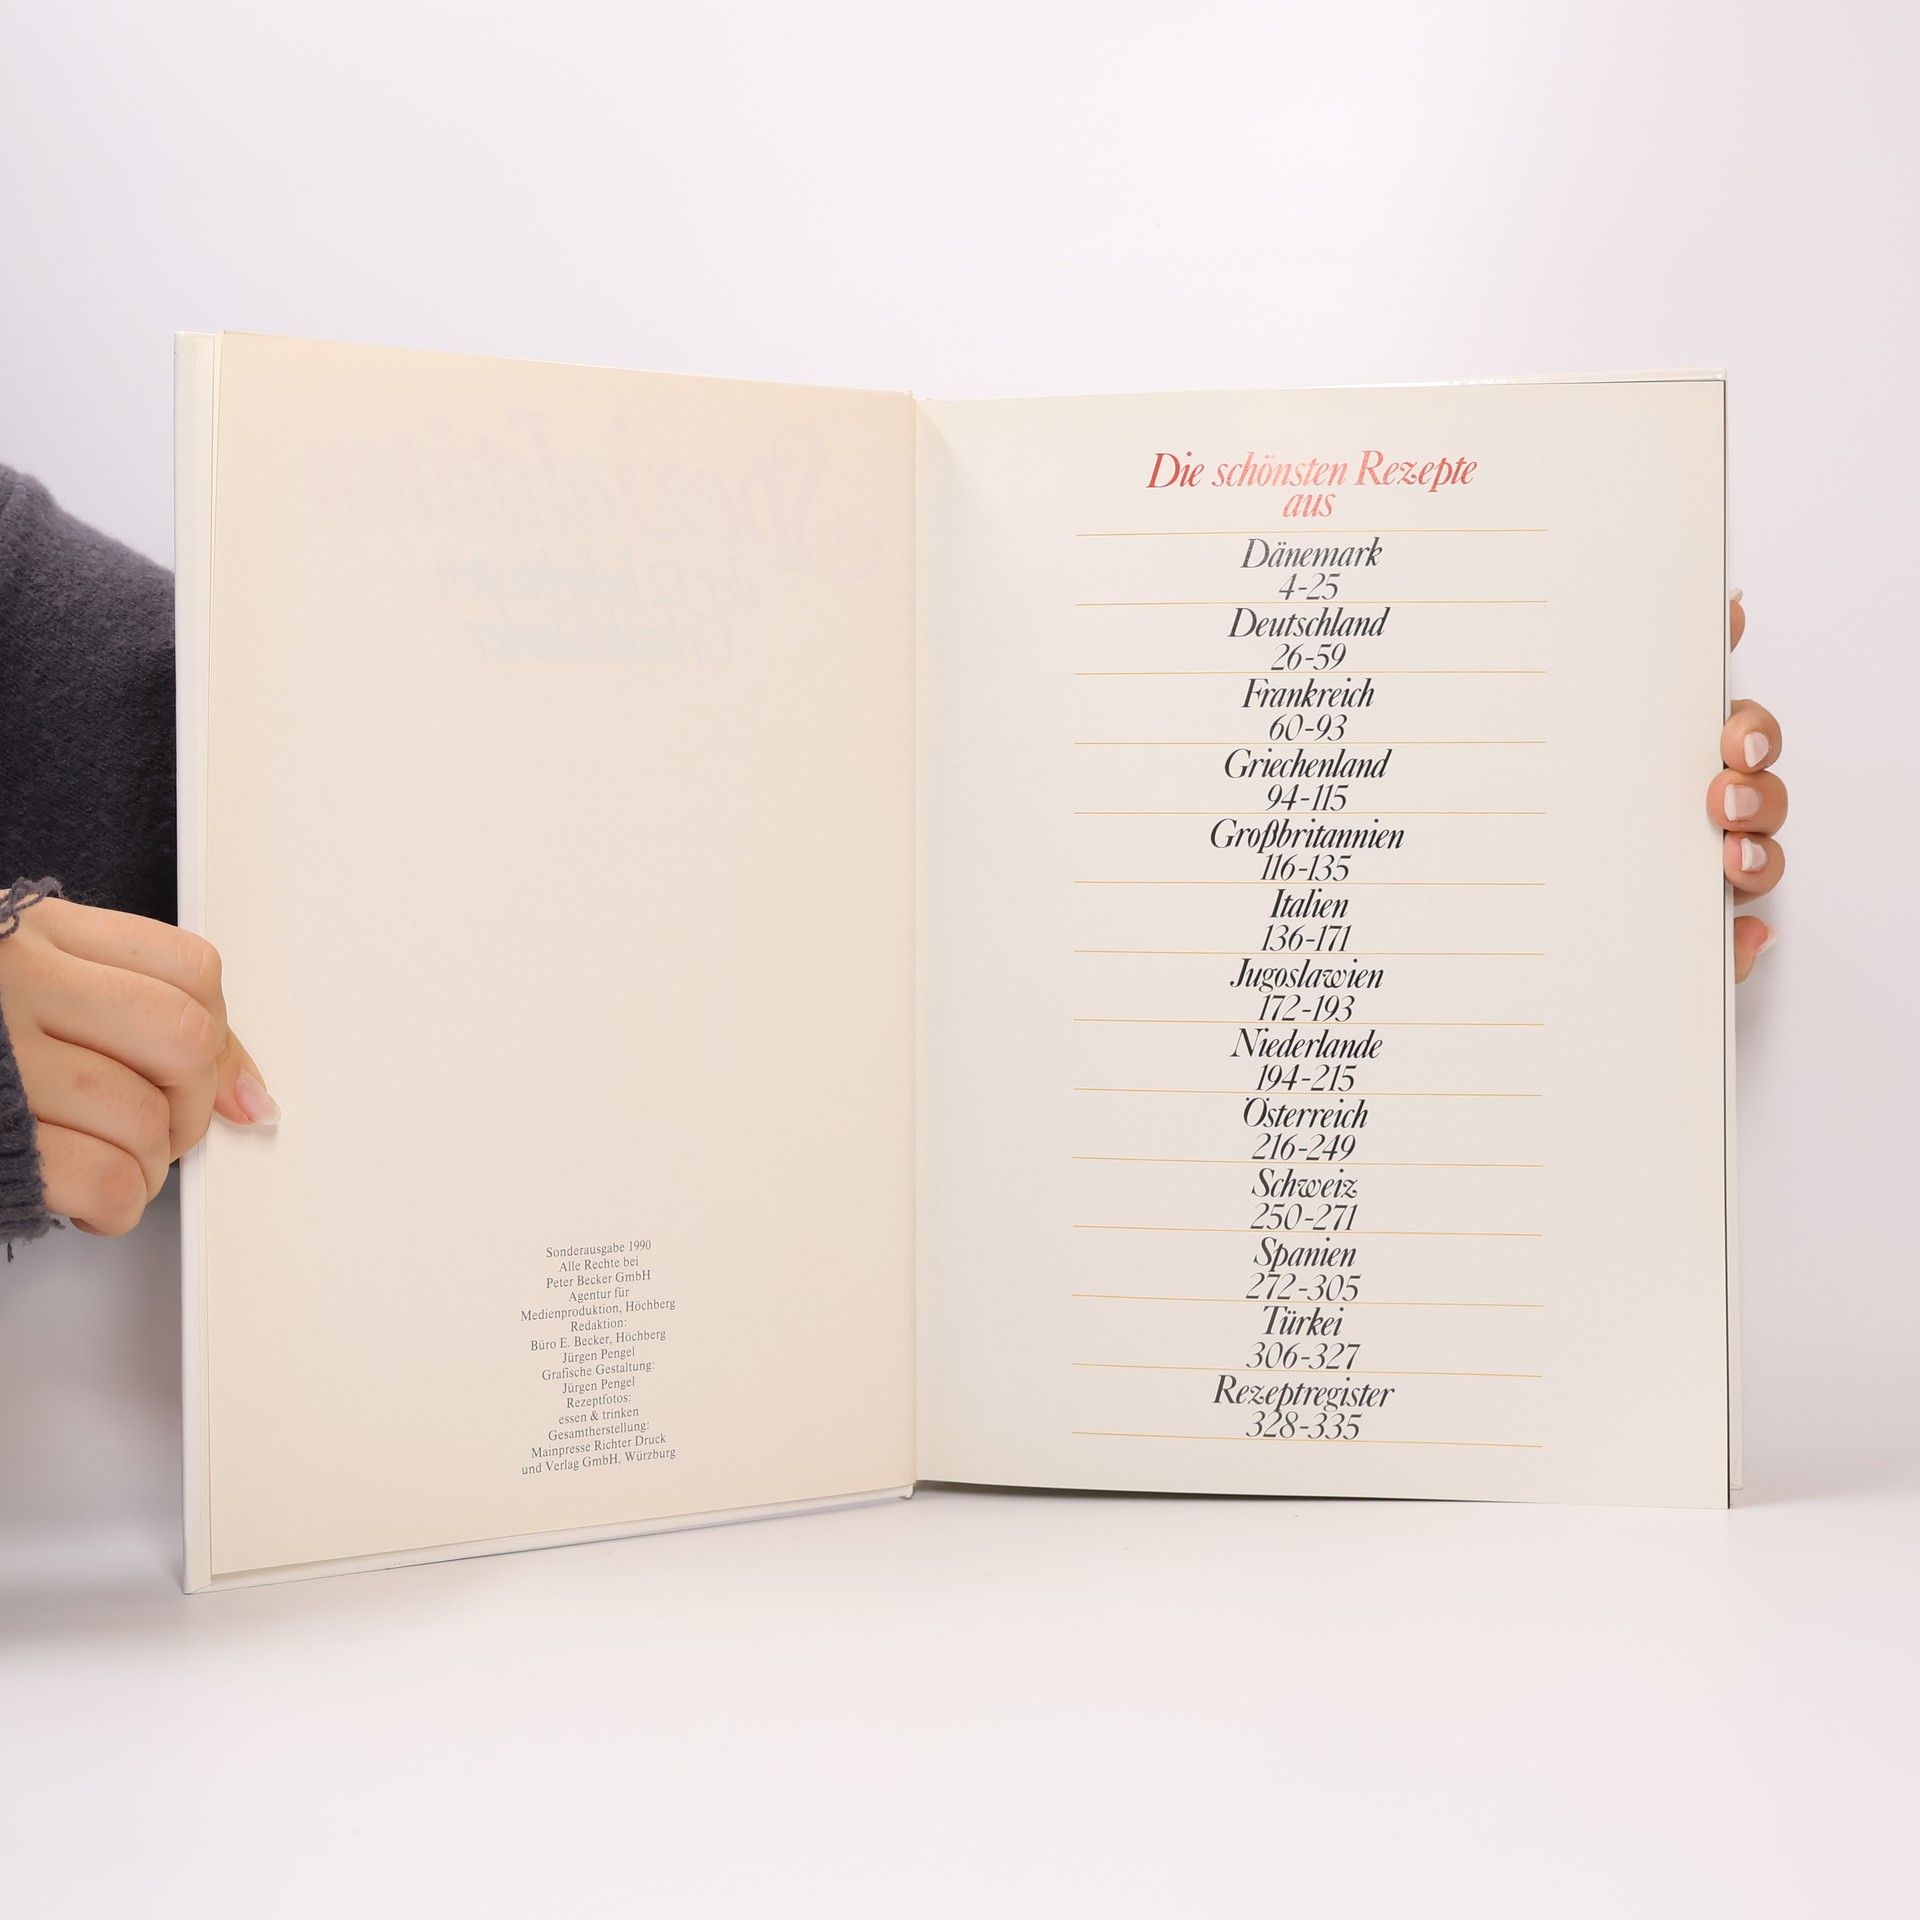 Sonderausgabe 1990
Alle Rechte bei
Peter Becker GmbH
Agentur für
Medienproduktion, Höchberg
Redaktion:
Büro E. Becker, Höchberg
Jürgen Pengel
Grafische Gestaltung:
Jürgen Pengel
Rezeptfotos:
essen & trinken
Gesamtherstellung:
Mainpresse Richter Druck
und Verlag GmbH, Würzburg
Die schönsten Rezepte
aus
Dänemark
4-25
Deutschland
26-59
Frankreich
60-93
Griechenland
94-115
Großbritannien
116-135
Italien
136-171
Jugoslawien
172-193
Niederlande
194-215
Österreich
216-249
Schweiz
250-271
Spanien
272-305
Türkei
306-327
Rezeptregister
328-335